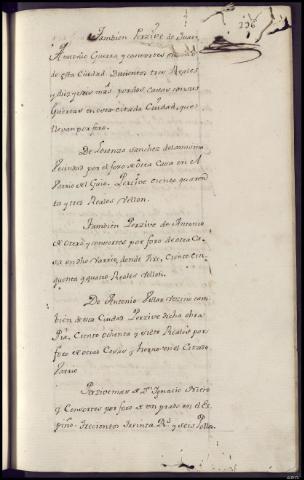 226
Tambien Persive de Juan
Antonio Guerra y consortes en
de esta Ciudad Ducientos tres Reales
y diez y seis mrs por dos Casas con sus
Guertas en esta citada Ciudad, que
llevan por foro.
De Lorenzo Sanchez de la misma
Vecindad por el foro de otra Casa en el
Varrio del Gaio. Persive ciento quaren
ta y tres Reales Vellon.
Tambien Persive de Antonio
de Otero y consortes por foro de otra Ca
sa en dho Varrio, donde vive, Ciento cin
quenta y quatro Reales vellon.
De Antonio Pillar vezino tam
bien de esta Ciudad Persive dicha obra
Pia, Ciento ochenta y siete Reales por
foro de otras Casas y horno en el Citado
Varrio
Persive mas de Dn Ignacio Nieto
y Consortes por foro de un prado en el Es
pino. Trecientos treinta Rs y seis Vellon